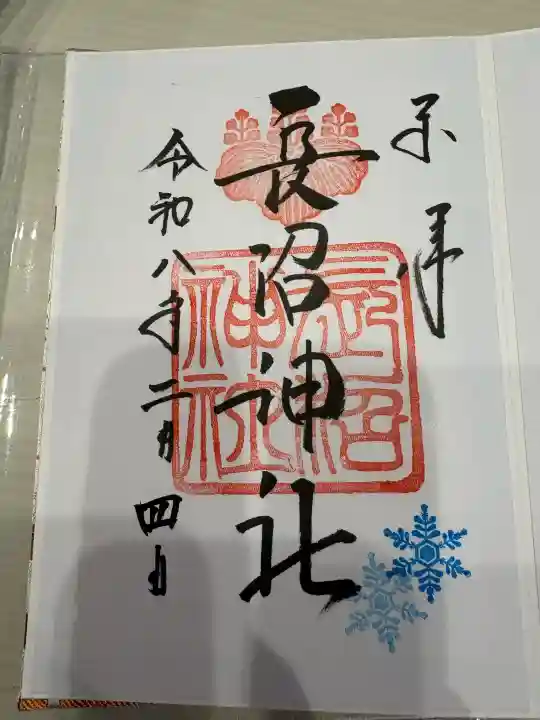 奉拝
長沼神社
令和八年二月四日
長沼神社